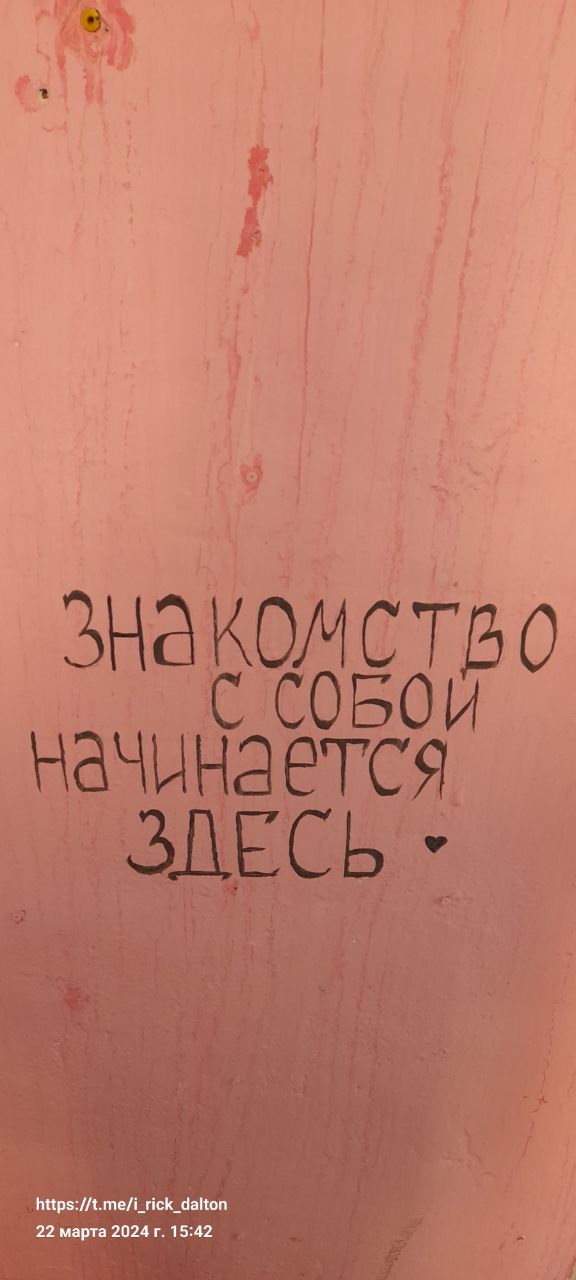 ЗНаКОМСТВО
С СОБОЙ
НаЧИНаеТСЯ
ЗДЕСЬ ♥
https://t.me/i_rick_dalton
22 марта 2024 г. 15:42